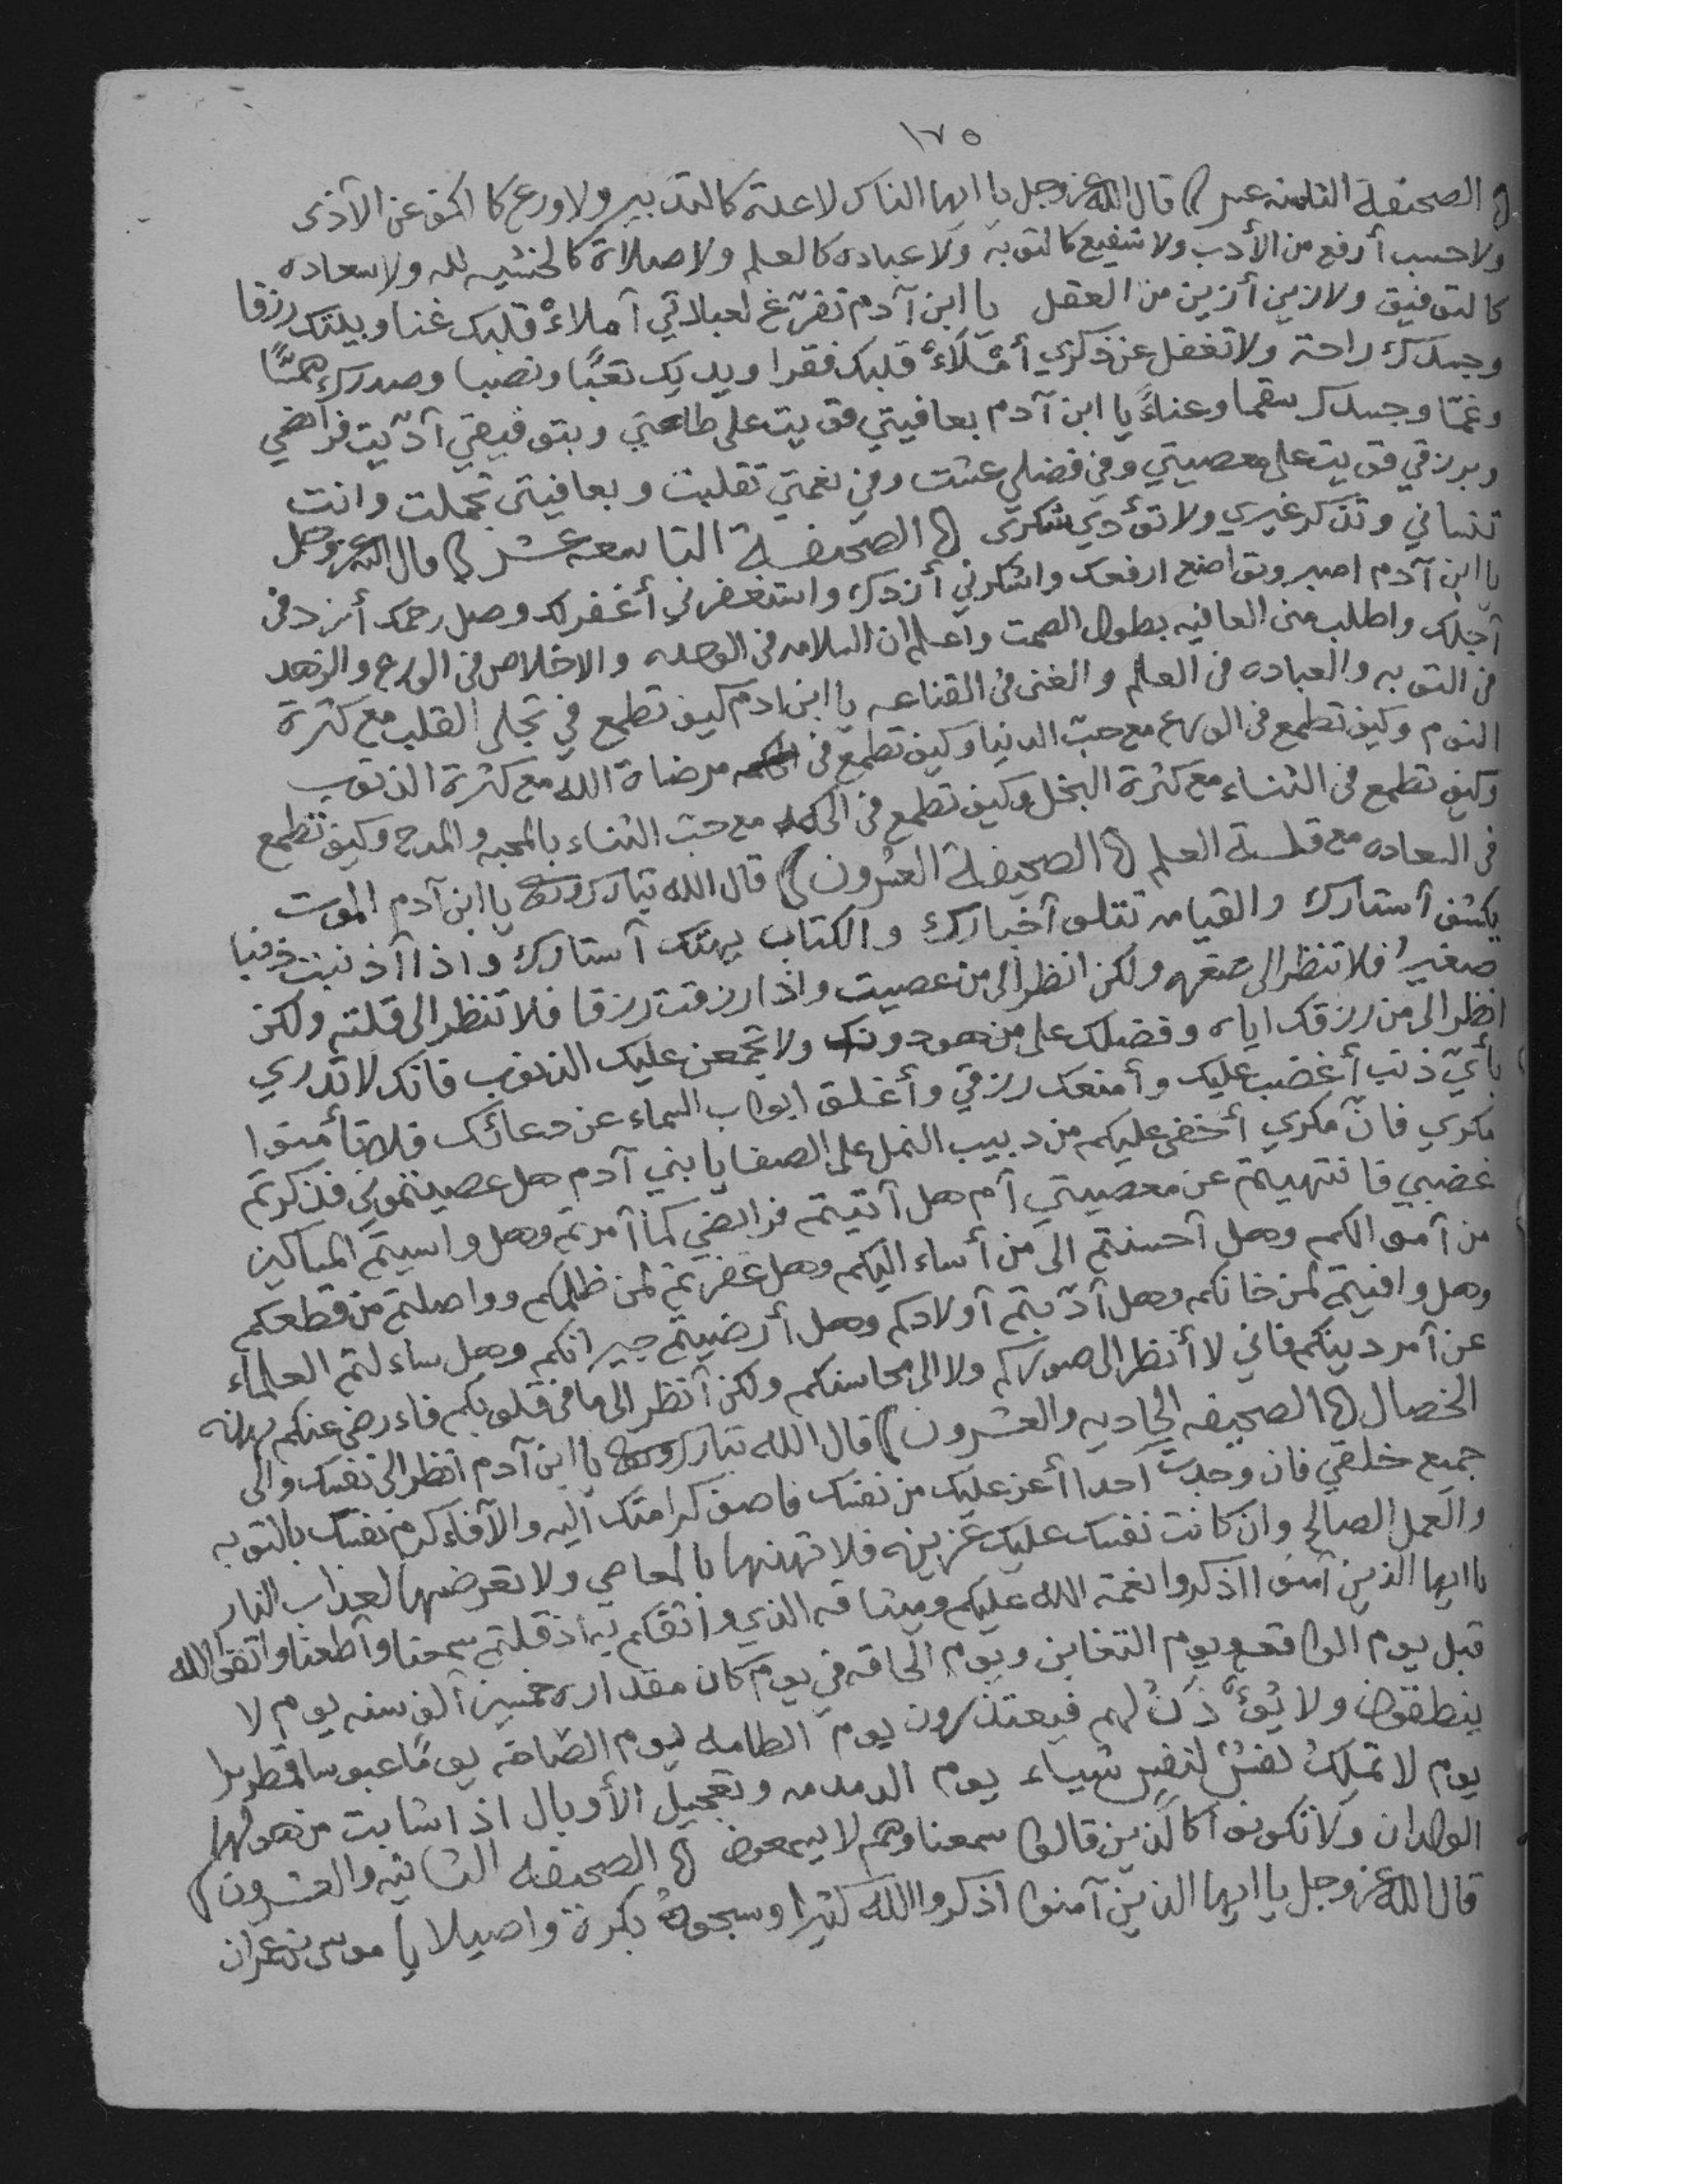 ١٧٥
الصحيفة الثامنه عشر قال الله عز وجل يا ايها الناس لا علة كالتدبير ولا ورع كالكف عن الأذى
ولا حسب أرفع من الأدب ولا شفيع كالتوبة ولا عباده كالعلم ولا صلاة كالخشيه لله ولا سعاده
كالتوفيق ولا زين أزين من العقل يا ابن آدم تفرّغ لعبادتي آملاءْ قلبك غنا ويديك رزقا
وجسدك راحة ولا تغفل عن ذكري أمْلَاءْ قلبك فقرا ويديك تعبًا ونصبا وصدرك همًّا
وغمّا وجسدك سقما وعناءً يا ابن آدم بعافيتي قويت على طاعتي وبتوفيقي آدّيت فرائضي
وبرزقي قويت على معصيتي وفي فضلي عشت وفي نعمتي تقلبت وبعافيتي تجملت وانت
تنساني وتذكر غيري ولا تؤدي شكري الصحيفة التاسعه عشر قال الله عز وجل
يا ابن آدم اصبر وتواضع ارفعك واشكرني أزدك واستغفرني أغفر لك وصل رحمك أزد في
آجلك واطلب مني العافيه بطول الصمت واعلم ان السلامه في الوحده والاخلاص في الورع والزهد
في التوبه والعباده في العلم والغنى في القناعه يا ابن ادم كيف تطمع في تجلي القلب مع كثرة
النوم وكيف تطمع في الورع مع حبّ الدنيا وكيف تطمع في مرضاة الله مع كثرة الذنوب
وكيف تطمع في الثناء مع كثرة البخل وكيف تطمع في الحكمه مع حبّ الثناء بالمحبه والمدح وكيف تطمع
في السعاده مع قلة العلم الصحيفة العشرون قال الله تبارك وتعالى يا ابن آدم الموت
يكشف آستارك والقيامه تتلو آخبارك والكتاب يهتك آستارك واذا آذنبت ذنبا
صغيرا فلا تنظر الى صغره ولكن انظر الى من عصيت واذا رزقت رزقا فلا تنظر الى قلته ولكن
انظر الى من رزقك اياه وفضلك على من هو دونك ولا تجمعن عليك الذنوب فانك لا تدري
بأيّ ذنب أغضب عليك وأمنعك رزقي وأغلق ابواب السماء عن دعائك فلا تأمنوا
مكري فانّ مكري أخفى عليكم من دبيب النمل على الصفا يا بني آدم هل عصيتموني فذكرتم
غضبي فانتهيتم عن معصيتي آم هل آتيتم فرائضي كما آمرتم وهل واسيتم المساكين
من آموالكم وهل آحسنتم الى من أساء اليكم وهل غفرتم لمن ظلمكم وواصلتم من قطعكم
وهل وافيتم لمن خانكم وهل آدّبتم آولادكم وهل أرضيتم جيرانكم وهل ساءلتم العلماء
عن آمر دينكم فاني لا أنظر الى صوركم ولا الى محاسنكم ولكن آنظر الى ما في قلوبكم فاءرضى عنكم بهذه
الخصال الصحيفه الحاديه والعشرون قال الله تبارك وتعالى يا ابن آدم انظر الى نفسك والى
جميع خلقي فان وجدت آحدا أعز عليك من نفسك فاصرف كرامتك اليه والآ فاءكرم نفسك بالتوبه
والعمل الصالح وان كانت نفسك عليك عزيزه فلا تهنها بالمعاصي ولا تعرضها لعذاب النار
يا ايها الذين آمنوا اذكروا نعمة الله عليكم وميثاقه الذي واثقكم به اذ قلتم سمعنا وآطعنا واتقوا الله
قبل يوم الواقعه ويوم التغابن ويوم الحاقه في يوم كان مقداره خمسين آلف سنه يوم لا
ينطقون ولا يُؤذَنُ لهم فيعتذرون يوم الطامه يوم الصّاخه يومًا عبوسا قمطريرا
يوم لا تملكُ نفسٌ لنفسٍ شيياء يوم الدمدمه وتعجيل الأوبال اذا شابت من هولها
الولدان ولا تكونوا كالذين قالوا سمعنا وهم لا يسمعون الصحيفه الثانيه والعشرون
قال الله عز وجل يا ايها الذين آمنوا اذكروا الله كثيرا وسبحوه بكرة واصيلا يا موسى بن عمران